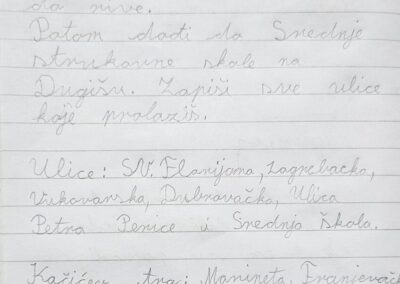 da rive.
Patom dođi do Srednje
strukovne skole na
Dugišu. Zapiši sve ulice
koje prolaziš.
Ulice: SV. Flarijana, Zagrebacka,
Vukovarska, Dubravačka, Ulica
Petra Perice i Srednja škola.
Kačićev trg: Marineta, Franjevačk